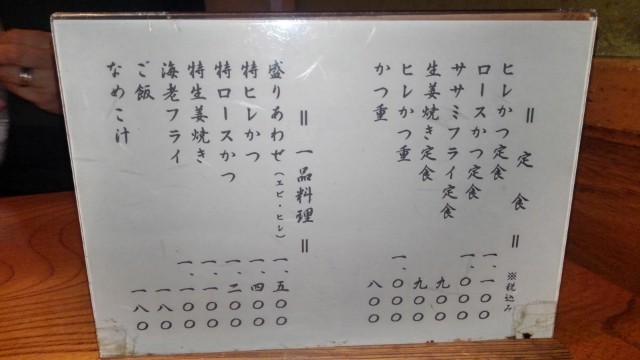 ＝ 定食 ＝
※税込み
ヒレかつ定食 一、一〇〇
ロースかつ定食 一、〇〇〇
ササミフライ定食 九〇〇
生姜焼き定食 九〇〇
ヒレかつ重 一、〇〇〇
かつ重 八〇〇
＝ 一品料理 ＝
盛りあわせ（エビ・ヒレ） 一、五〇〇
特ヒレかつ 一、四〇〇
特ロースかつ 一、二〇〇
特生姜焼き 一、一〇〇
海老フライ 一、一〇〇
ご飯 一八〇
なめこ汁 一八〇